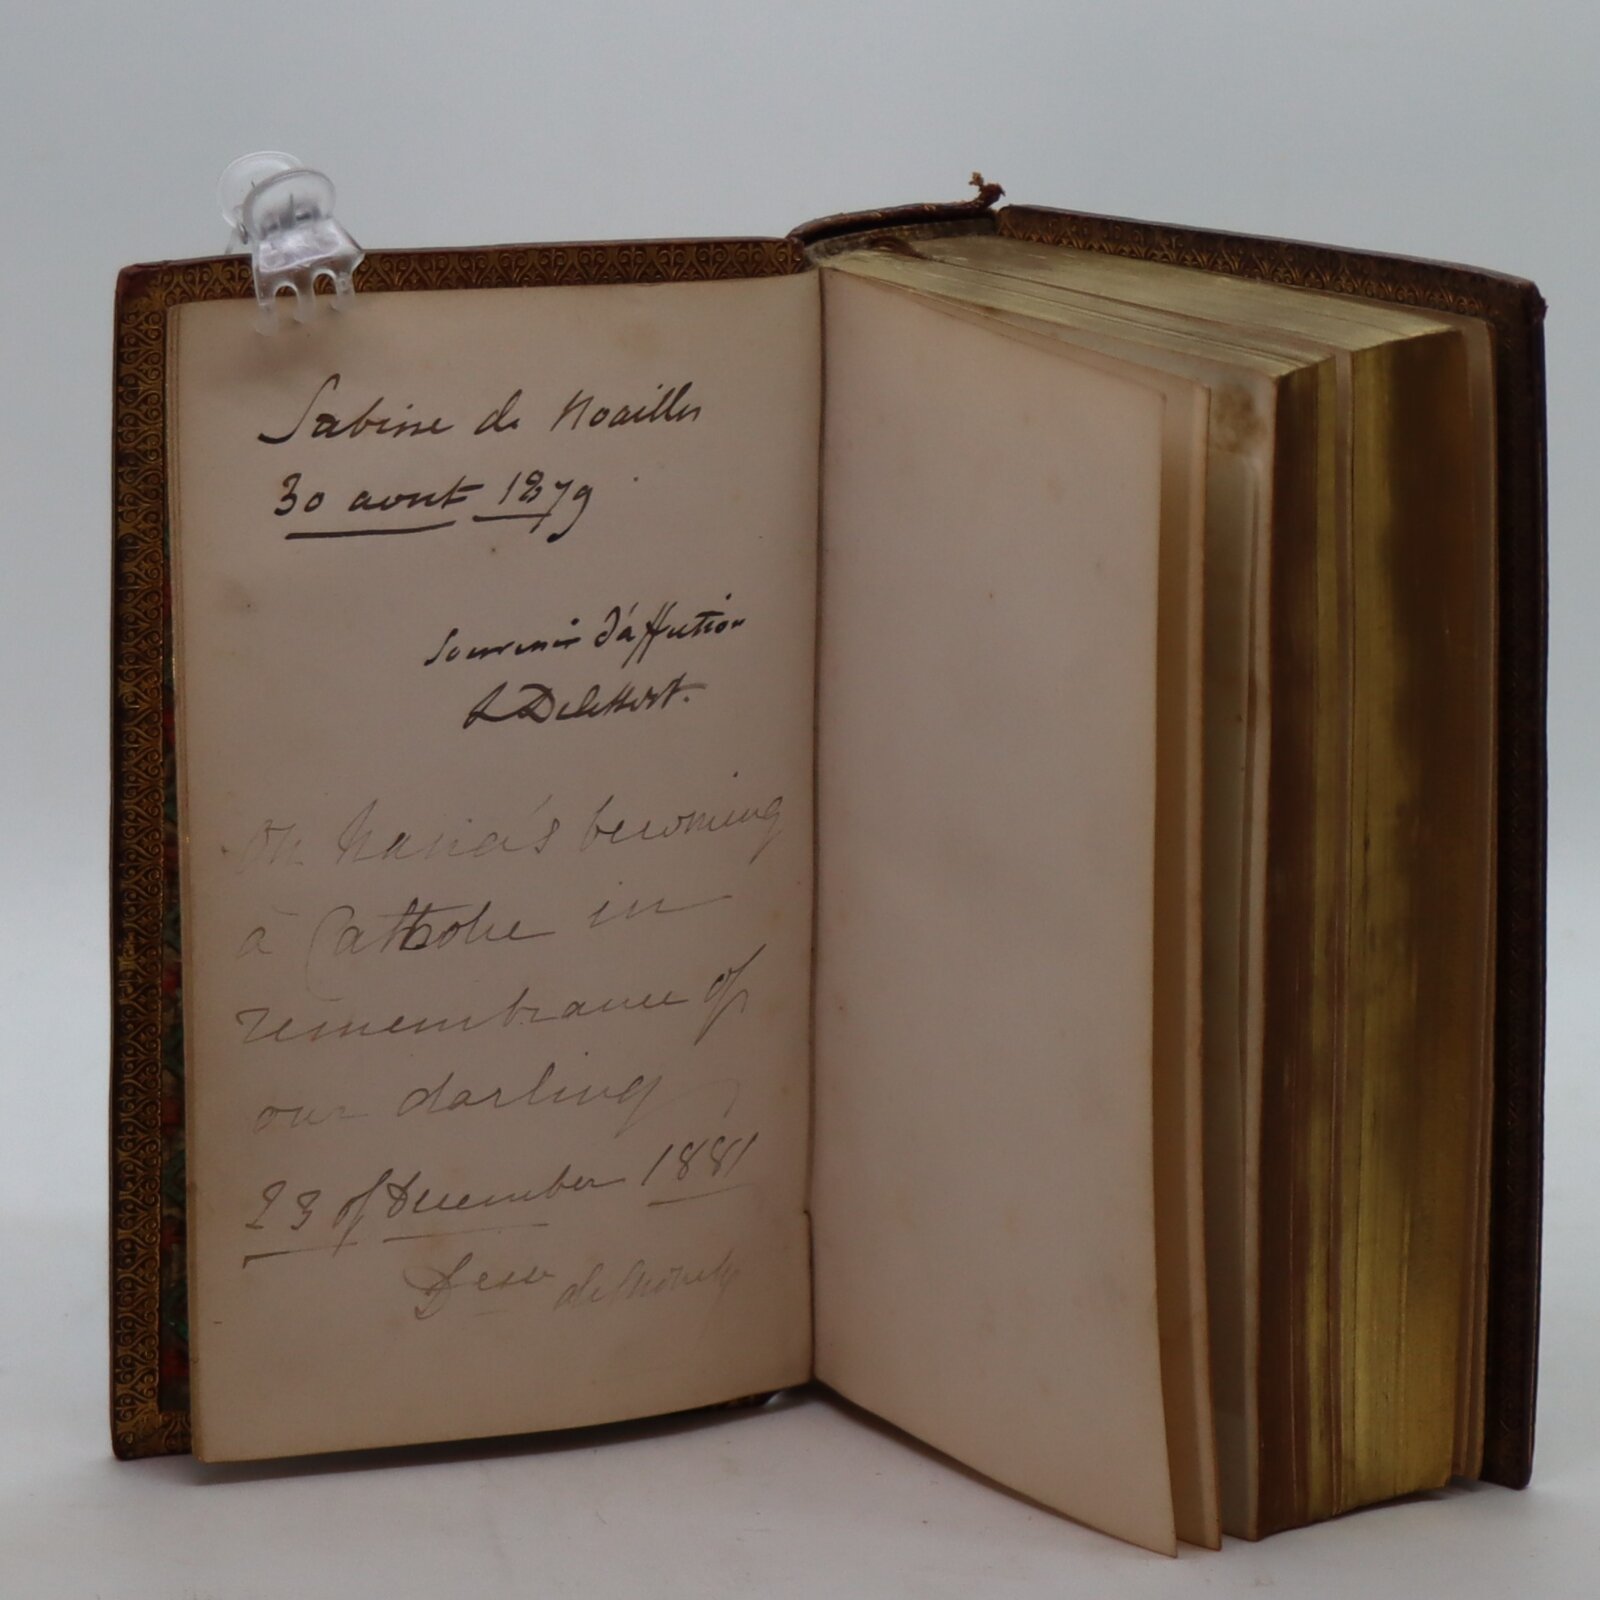 Sabine de Noailles
30 aout 1879
Souvenir d'affection
On Maria's becoming
a Catholic in
remembrance of
our darling
23 of December 1881